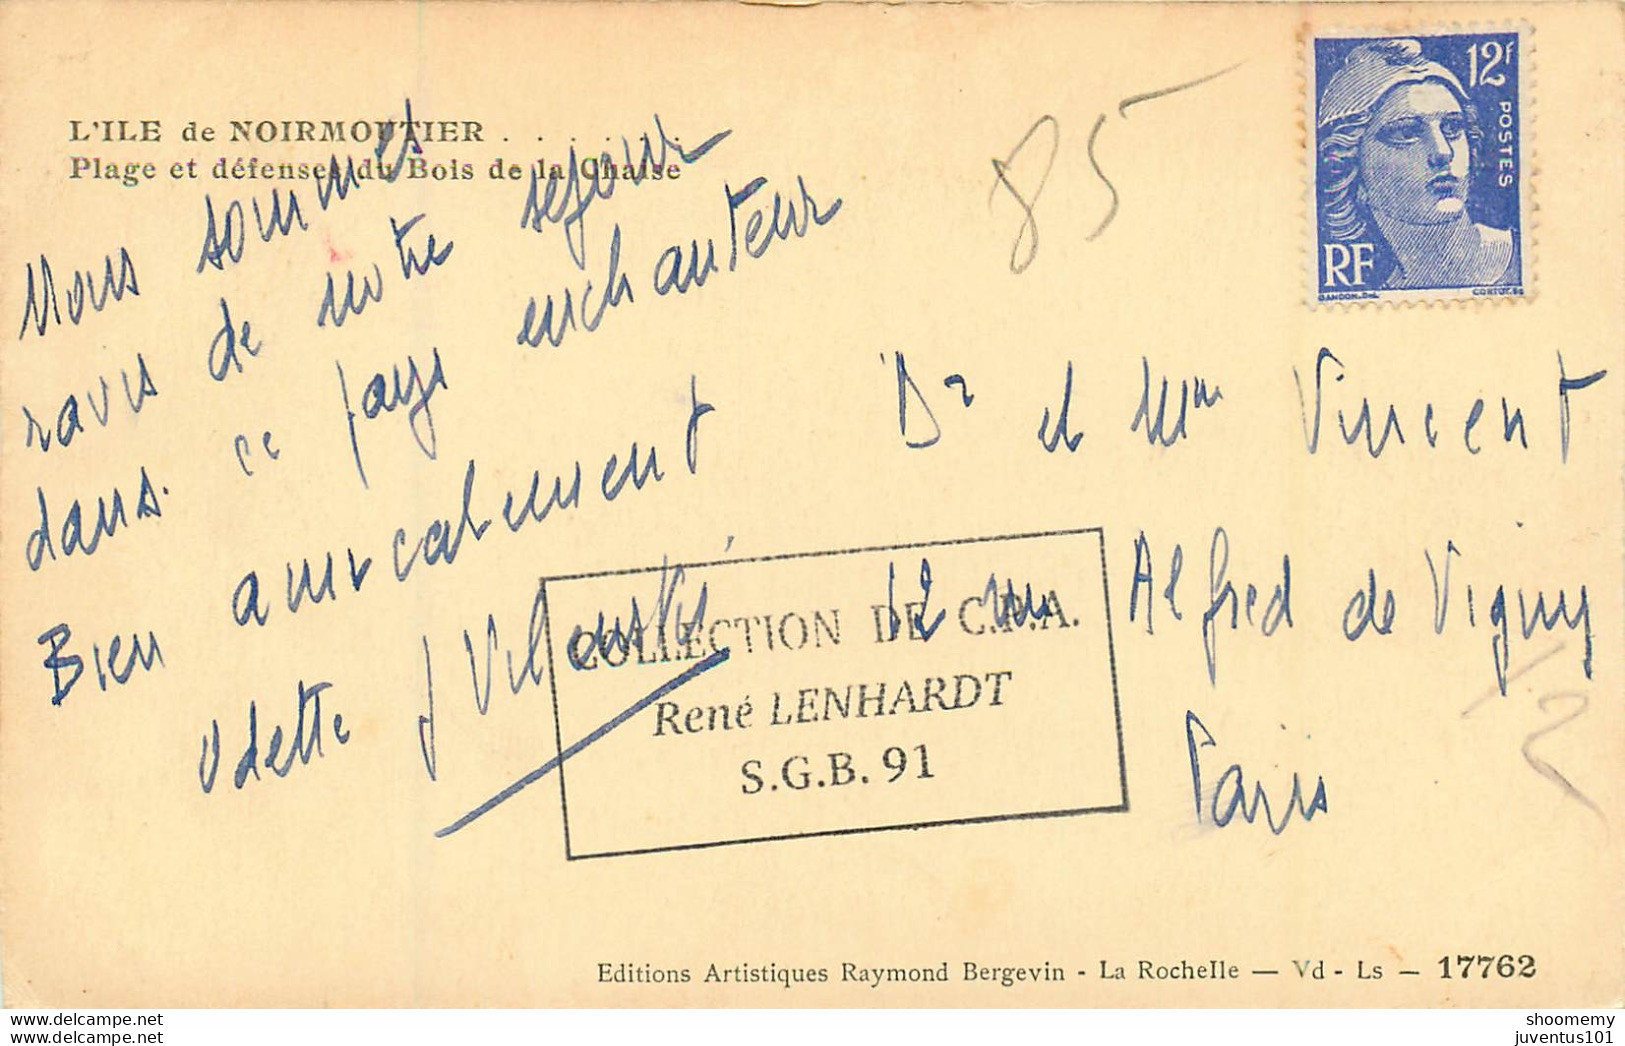 L'ILE de NOIRMOUTIER . . . . . . .
Plage et défenses du Bois de la Chaise
Nous sommes
ravis de notre sejour
dans ce pays enchanteur
Bien amicalement
Odette
85
12f
POSTES
RF
GANDON.DEL
CORTOT.SC
Dr et Mme Vincent
12 rue Alfred de Vigny
Paris
12
COLLECTION DE C.P.A.
René LENHARDT
S.G.B. 91
Editions Artistiques Raymond Bergevin - La Rochelle — Vd - Ls — 17762
shoomemy
juventus101
www.delcampe.net